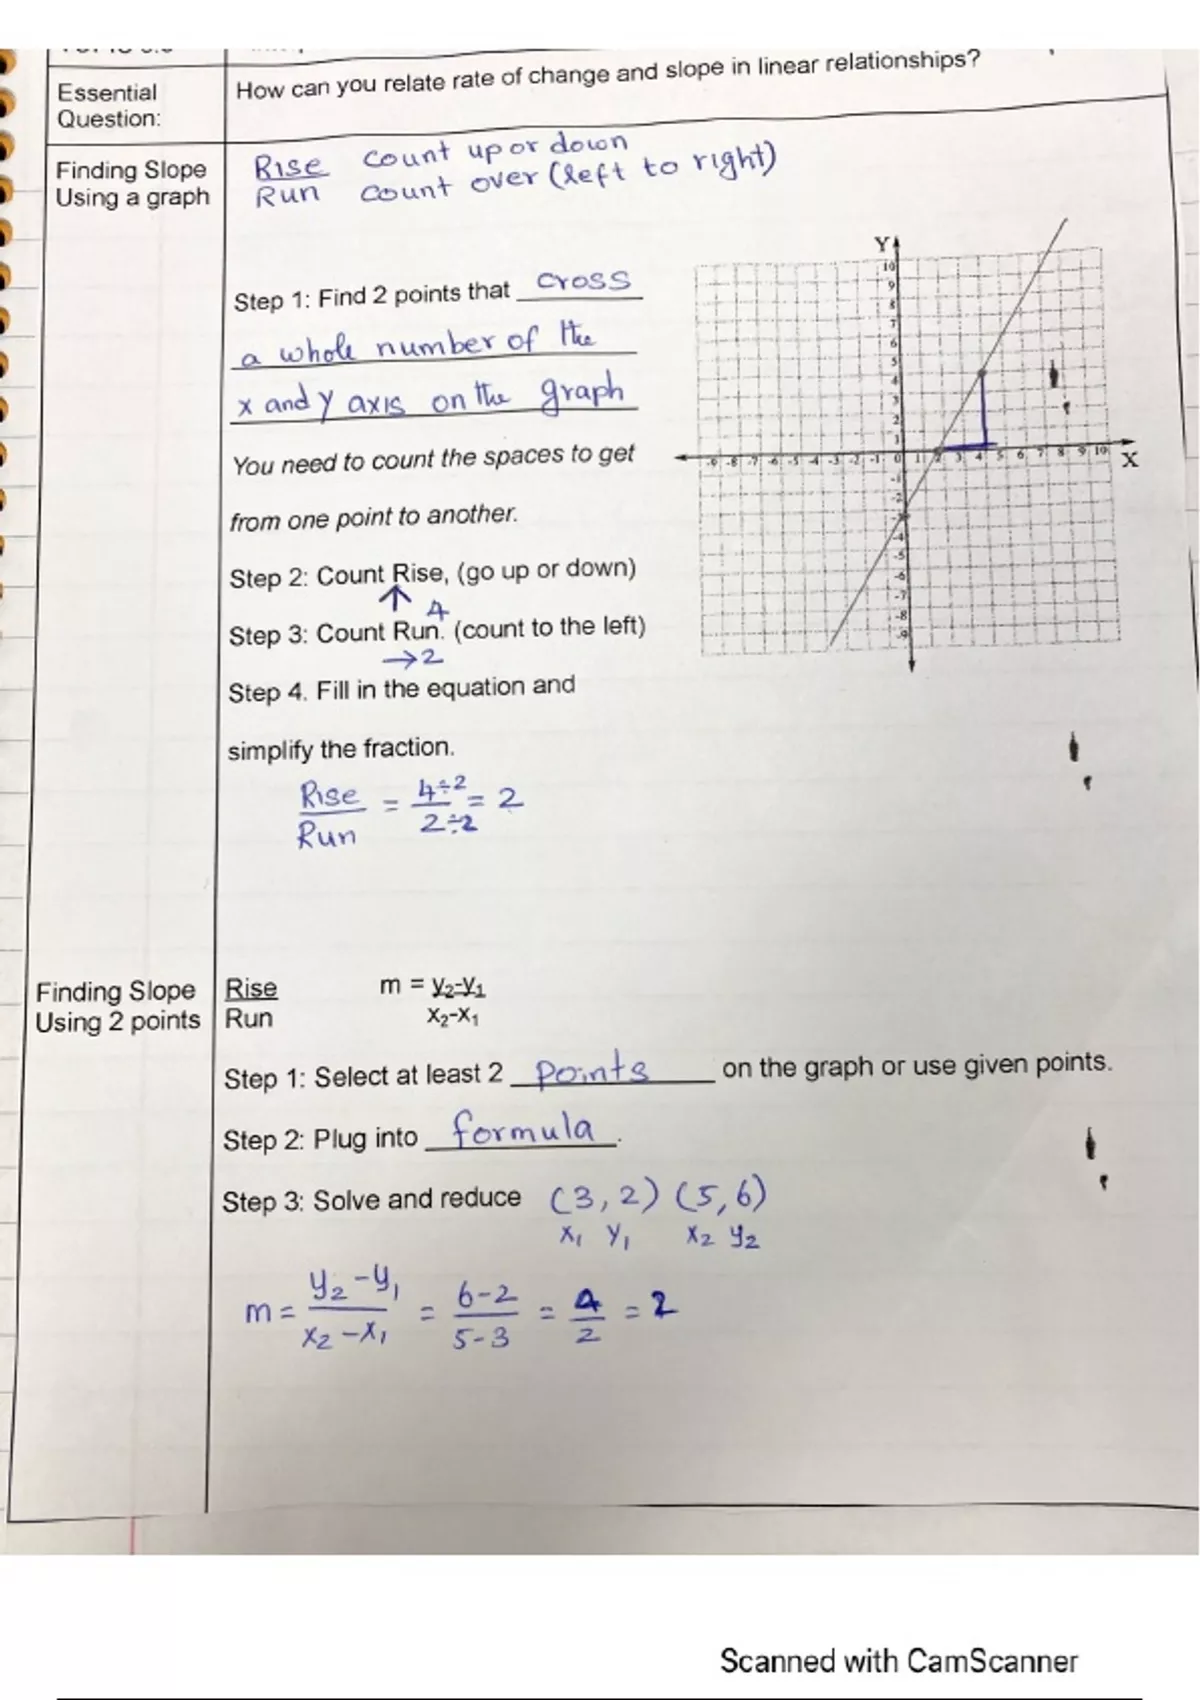 Essential
Question:
How can you relate rate of change and slope in linear relationships?
Finding Slope
Using a graph
Rise count up or down
Run count over (left to right)
Step 1: Find 2 points that cross
a whole number of the
x and y axis on the graph
You need to count the spaces to get
from one point to another.
Step 2: Count Rise, (go up or down)
↑ 4
Step 3: Count Run. (count to the left)
→2
Step 4. Fill in the equation and
simplify the fraction.
Rise = 4÷2 = 2
Run 2÷2
Y
10
9
8
7
6
5
4
3
2
1
-9 -8 -7 -6 -5 -4 -3 -2 -1 0 1 2 3 4 5 6 7 8 9 10 X
-1
-2
-4
-5
-6
-7
-8
-9
Finding Slope
Using 2 points
Rise m = y₂-y₁
Run x₂-x₁
Step 1: Select at least 2 points on the graph or use given points.
Step 2: Plug into formula.
Step 3: Solve and reduce (3, 2) (5, 6)
x₁ y₁ x₂ y₂
m = y₂-y₁ = 6-2 = 4 = 2
x₂-x₁ 5-3 2
Scanned with CamScanner